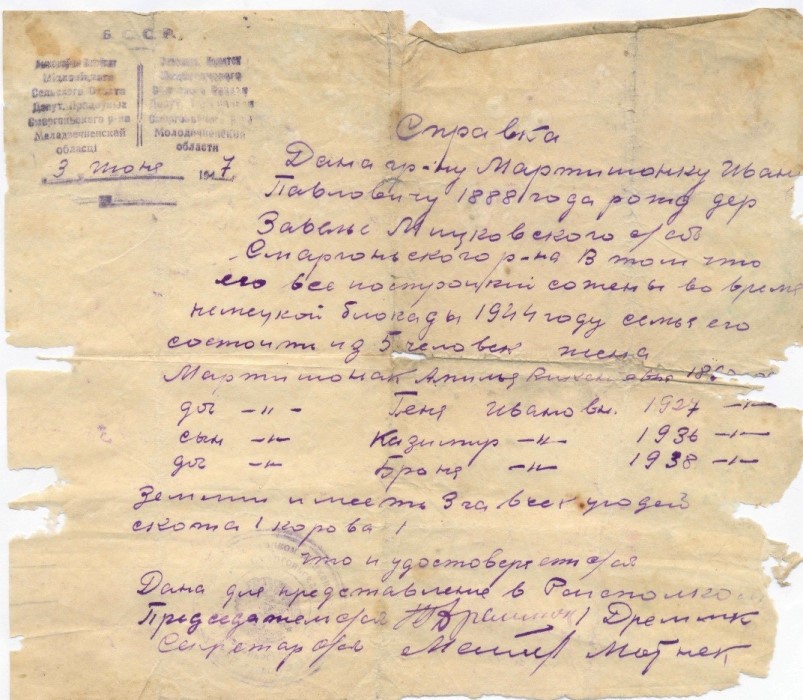 Б. С. С. Р.
Выканаўчы Камітэт
Сельскага Савета
Дэпут. Працоўных
Смаргоньскага р-на
Маладзечненскай
обласці
Исполнит. Комитет
Сельского Совета
Депут. Трудящихся
Молодечненской
области
3 июня 1947
Справка
Дана гр-ну Мартишонку Иван
Павловичу 1888 года рожд дер
Мицковского с/сов
Сморгоньского р-на В том что
его все постройки сожены во врем
немецкой блокады 1944 году семья его
состоить из 5 человек жена
Мартишонак
доч -"- Геня Ивановн. 1927 -"-
сын -"- Казимир -"- 1936 -"-
доч -"- Броня -"- 1938 -"-
Земли имееть 3 га всех угодей
скота 1 корова 1
что и удостоверяет с/сов
Дана для представление в Райсполком
Председатель с/сов Дремык
Секретар с/сов